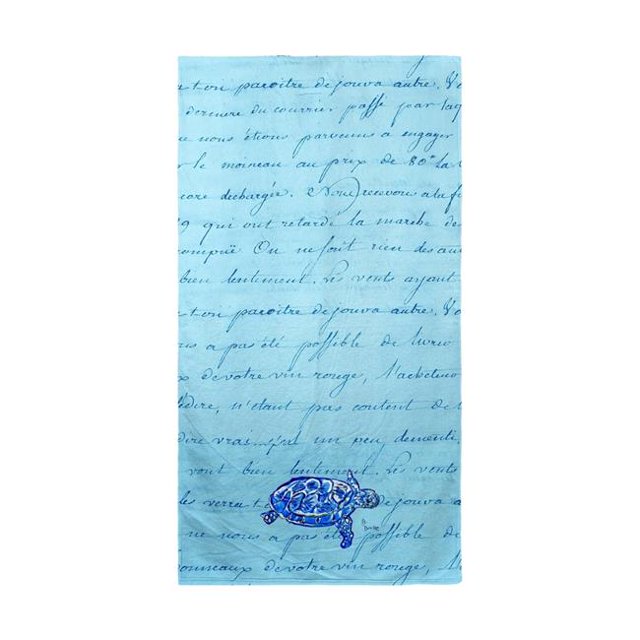 ton paroitre de jouva autre. Vo
derniere du courrier passé par laq
e nous étions parvenus a engager
r le moineau au prix de 80" la
core dechargée. Nous recevons a la f
9 qui ont retardé la marche de
compuë On ne fait rien des au
bien lentement. Les vents ayant
ton paroitre de jouva autre. Vo
us a pas été possible de livre
x de votre vin rouge, l'acheteu
dire, n'etant pas content de l
dire vrai un peu dementi,
vont bien lentement. Les vents
les verra t
ne nous a pas été possible de
onneaux de votre vin rouge, l'a